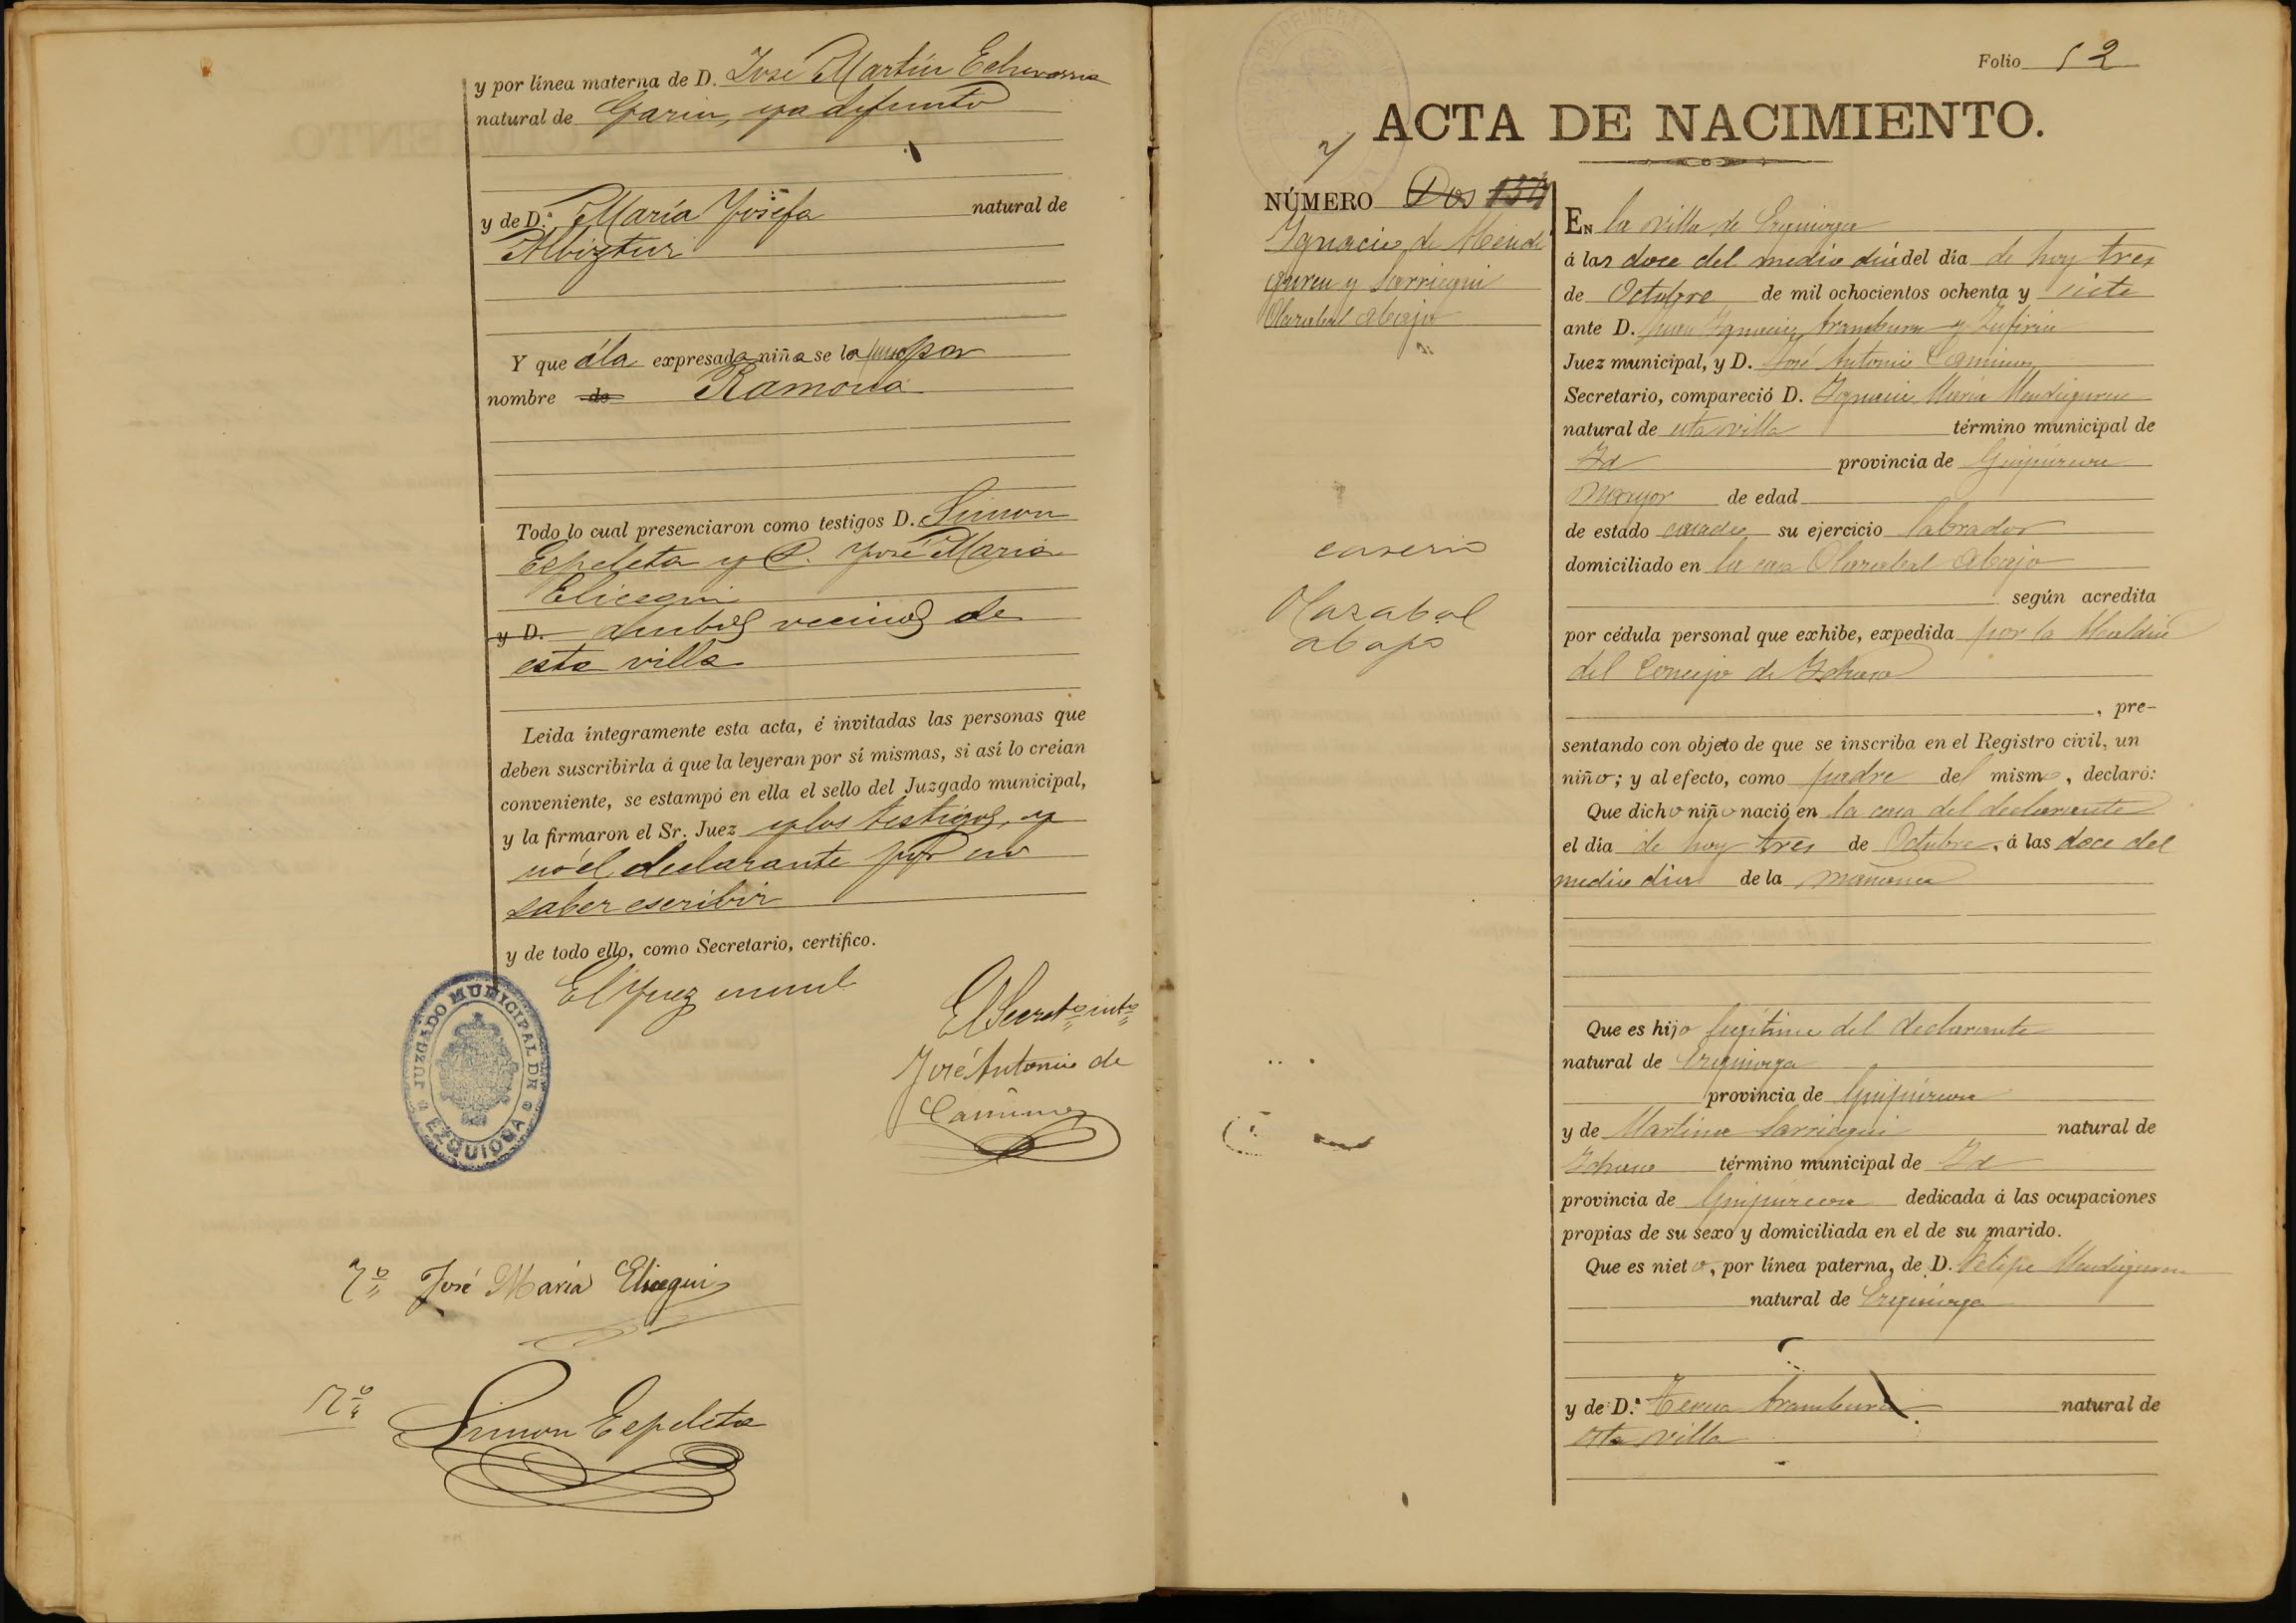 y por línea materna de D. José Martín Echevarria
natural de Garin, ya difunto
y de D.ª María Josefa natural de
Albiztur
Y que á la expresada niña se la puso por
nombre de Ramona
Todo lo cual presenciaron como testigos D. Simon
Espeleta y D. José Maria
Elicegui
y D. ambos vecinos de
esta villa
Leida íntegramente esta acta, é invitadas las personas que
deben suscribirla á que la leyeran por sí mismas, si así lo creían
conveniente, se estampó en ella el sello del Juzgado municipal,
y la firmaron el Sr. Juez y los testigos, y
nó el declarante por no
saber escribir
y de todo ello, como Secretario, certifico.
El Juez munl
El Secretº intº
José Antonio de
JUZGADO MUNICIPAL DE
EZQUIOGA
Tº José María Elicegui
Tº Simon Espeleta
Folio 12
ACTA DE NACIMIENTO.
7
NÚMERO Dos 154
Ignacio de Mendi
guren y Sarriegui
Olazabal abajo
caserio
Olazabal
abajo
EN la villa de Ezquioga
á las doce del medio dia del día de hoy tres
de Octubre de mil ochocientos ochenta y siete
ante D. Juan Ignacio Aramburu y
Juez municipal, y D. José Antonio
Secretario, compareció D. Ignacio María Mendiguren
natural de esta villa término municipal de
Id provincia de Guipúzcoa
mayor de edad
de estado casado su ejercicio labrador
domiciliado en la casa Olazabal abajo
según acredita
por cédula personal que exhibe, expedida por la Alcaldía
del Concejo de Ichaso
, pre-
sentando con objeto de que se inscriba en el Registro civil, un
niño; y al efecto, como padre del mismo, declaró:
Que dicho niño nació en la casa del declarante
el día de hoy tres de Octubre, á las doce del
medio dia de la mañana
Que es hijo legítimo del declarante
natural de Ezquioga
provincia de Guipúzcoa
y de Martina Sarriegui natural de
Ichaso término municipal de Id
provincia de Guipúzcoa dedicada á las ocupaciones
propias de su sexo y domiciliada en el de su marido.
Que es nieto, por línea paterna, de D. Felipe Mendiguren
natural de Ezquioga
y de D.ª Teresa Aramburu natural de
esta villa